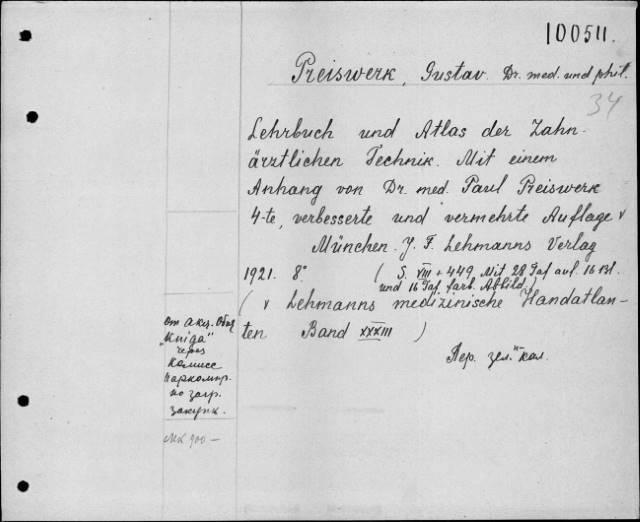 100511.
Preiswerk, Gustav. Dr. med. und phil.
34
Lehrbuch und Atlas der Zahn-
ärztlichen Technik. Mit einem
Anhang von Dr. med. Paul Preiswerk
4-te, verbesserte und vermehrte Auflage v
München. J. F. Lehmanns Verlag
1921. 8° (S. XIII + 449, Mit 28 Taf auf 16 Bl.
und 16 Taf. farb. Abbild.)
( v Lehmanns medizinische Handatlan-
ten Band XXXIII )
Пер. зел. кол.
от акц. Общ
"Книга"
через
Комисс
Наркомпр.
по загр.
закупк.
Mk 900 -